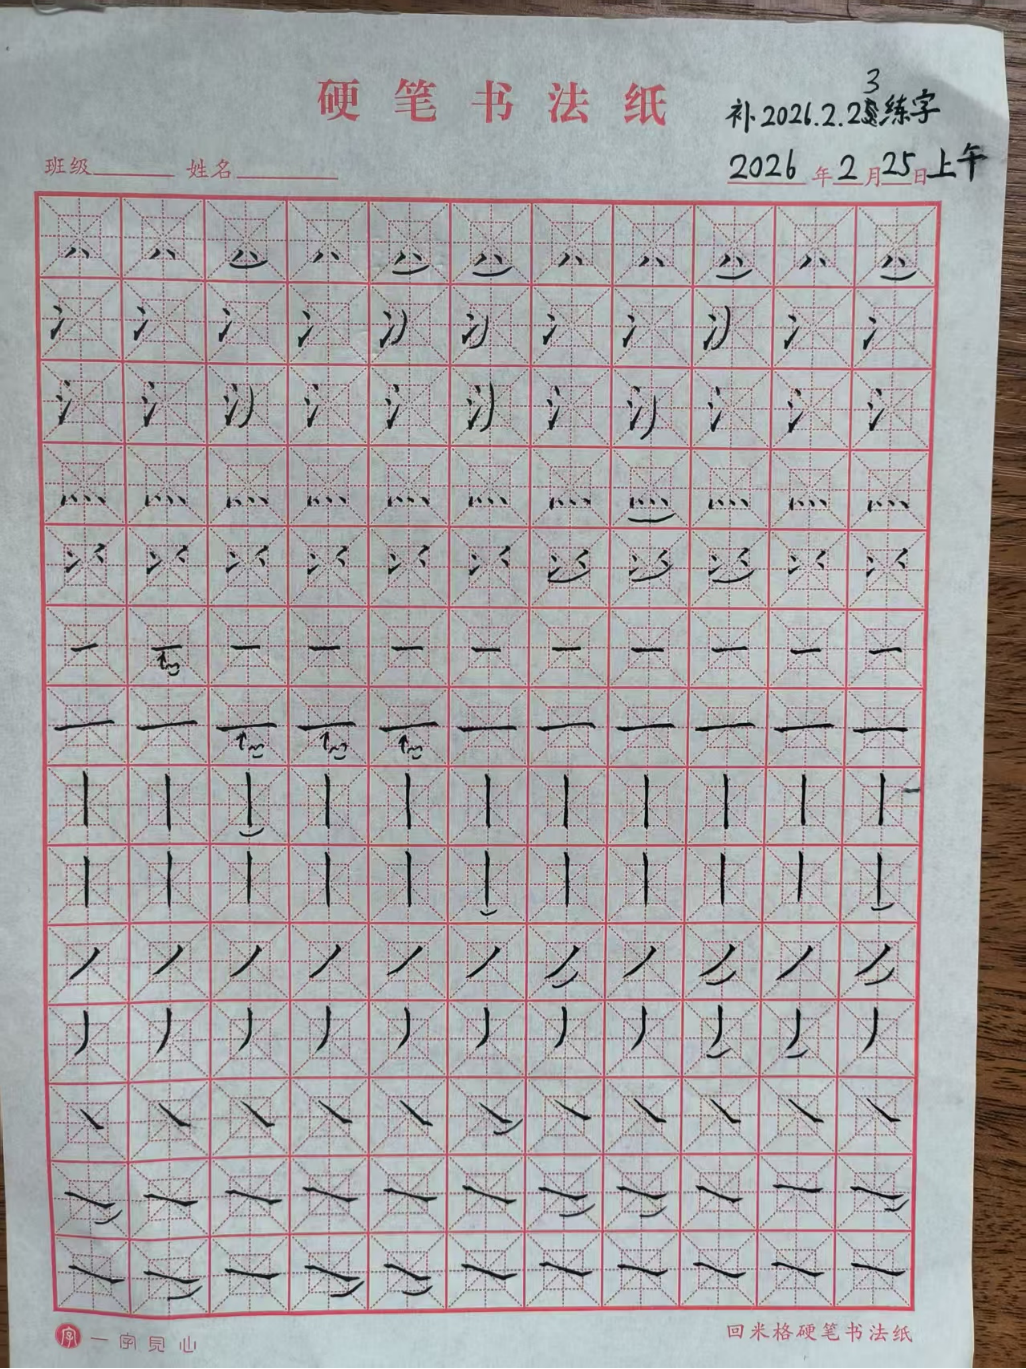 硬笔书法纸
3
补2026.2.2练字
班级 姓名 2026年2月25日上午
一字见心
回米格硬笔书法纸